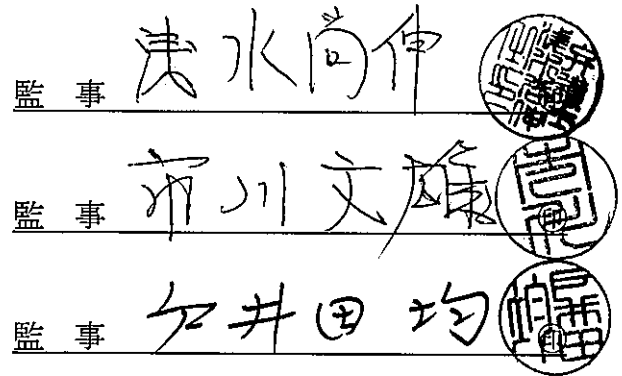 監 事 水尚伸
監 事 市川文雄 印
監 事 戸井田 均 印